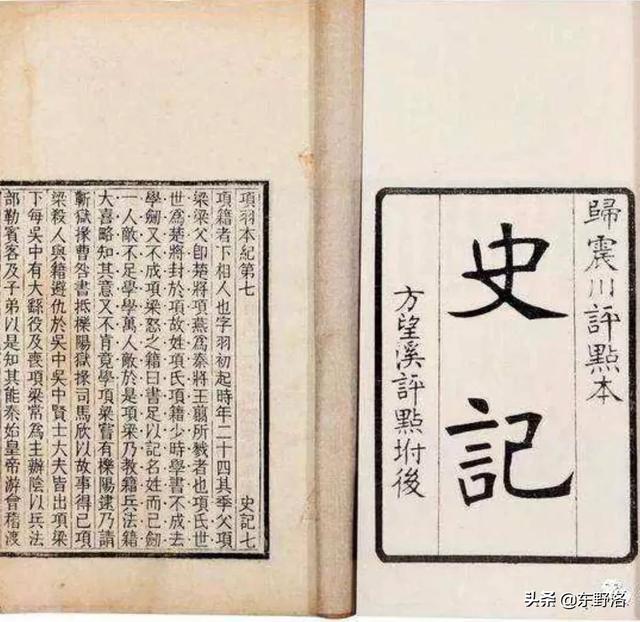 歸震川評點本
史記
方望溪評點坿後
項羽本紀第七 史記七
項籍者下相人也字羽初起時年二十四其季父項
梁梁父卽楚將項燕爲秦將王翦所戮者也項氏世
世爲楚將封於項故姓項氏項籍少時學書不成去
學劒又不成項梁怒之籍曰書足以記名姓而已劒
一人敵不足學學萬人敵於是項梁乃教籍兵法籍
大喜略知其意又不肯竟學項梁嘗有櫟陽逮乃請
蘄獄掾曹咎書抵櫟陽獄掾司馬欣以故事得已項
梁殺人與籍避仇於吳中吳中賢士大夫皆出項梁
下每吳中有大繇役及喪項梁常爲主辦陰以兵法
部勒賓客及子弟以是知其能秦始皇帝游會稽渡
头条 @东野洛